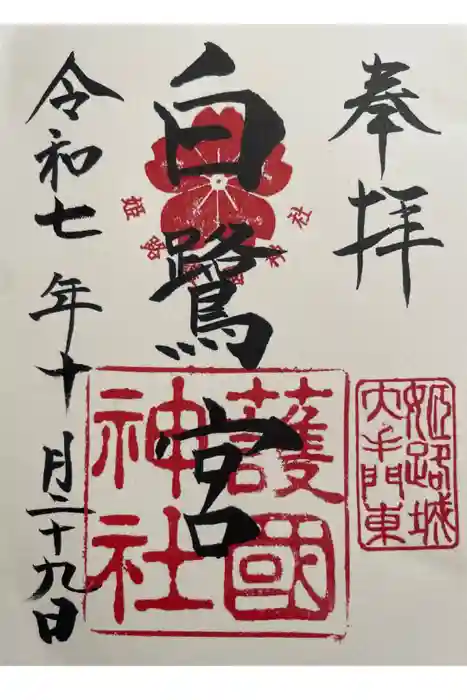 奉拝
姫路城
大手門東
白鷺宮
姫路
神社
護國
神社
令和七年十月二十九日